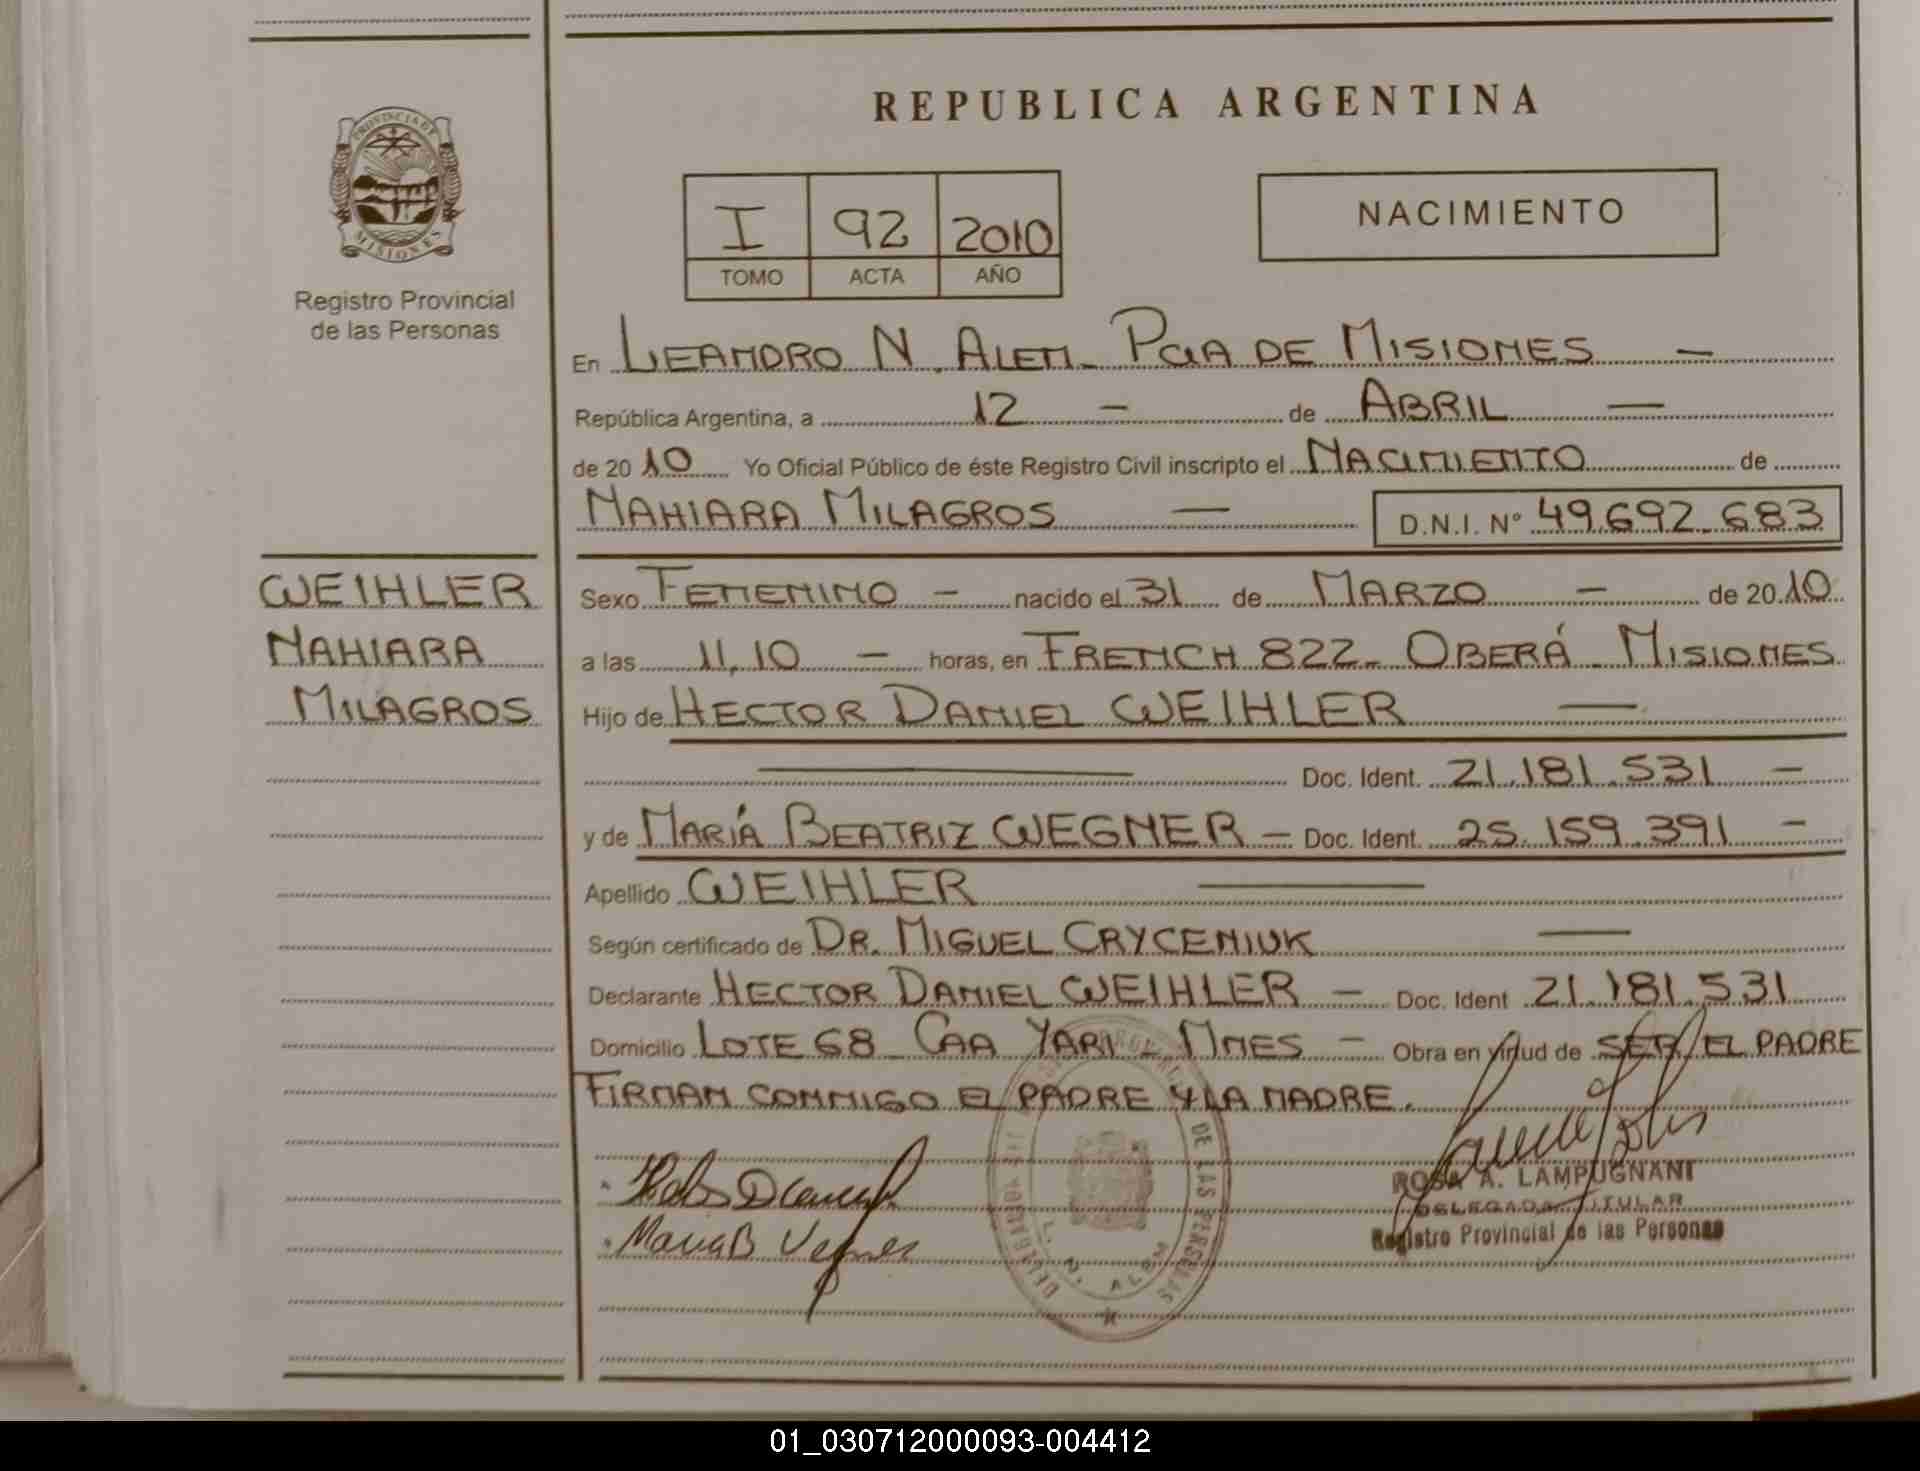 REPUBLICA ARGENTINA
PROVINCIA DE
MISIONES
Registro Provincial
de las Personas
I 92 2010
TOMO ACTA AÑO
NACIMIENTO
En LEANDRO N. ALEM - PCIA DE MISIONES —
República Argentina, a 12 — de ABRIL —
de 20 10 Yo Oficial Público de éste Registro Civil inscripto el NACIMIENTO de
NAHIARA MILAGROS — D.N.I. Nº 49.692.683
WEIHLER
NAHIARA
MILAGROS
Sexo FEMENINO — nacido el 31 de MARZO — de 20 10
a las 11,10 — horas, en FRENCH 822 - OBERÁ - MISIONES
Hijo de HECTOR DANIEL WEIHLER —
Doc. Ident. 21.181.531 —
y de MARÍA BEATRIZ WEGNER — Doc. Ident. 25.159.391 —
Apellido WEIHLER —
Según certificado de DR. MIGUEL CRYCENIUK —
Declarante HECTOR DANIEL WEIHLER — Doc. Ident 21.181.531
Domicilio LOTE 68 - CAA YARI - MNES — Obra en virtud de SER EL PADRE
FIRMAN CONMIGO EL PADRE Y LA MADRE.
Maria B Vegner
DE LAS PERSONAS
L. N. ALEM
ROSA A. LAMPUGNANI
DELEGADA TITULAR
Registro Provincial de las Personas
01_030712000093-004412